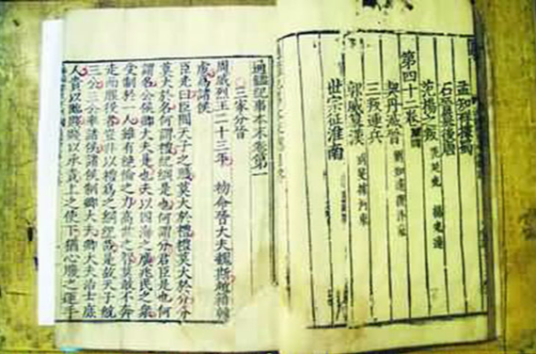 孟知祥據蜀
石晉篡後唐
范楊之叛 范延光 楊光遠
第四十二卷
契丹滅晉
三叛連兵
郭威篡漢 劉旻據河東
世宗征淮南
通鑑紀事本末卷第一
三家分晉
周威烈王二十三年 初命晉大夫魏斯趙籍韓
虔為諸侯
臣光曰臣聞天子之職莫大於禮禮莫大於分分
莫大於名何謂禮紀綱是也何謂分君臣是也何
謂名公侯卿大夫是也夫以四海之廣兆民之衆
受制於一人雖有絶倫之力高世之智莫敢不奔
走而服役者豈非以禮為之紀綱哉是故天子統
三公三公率諸侯諸侯制卿大夫卿大夫治士庶
人貴以臨賤賤以承貴上之使下猶心腹之運手